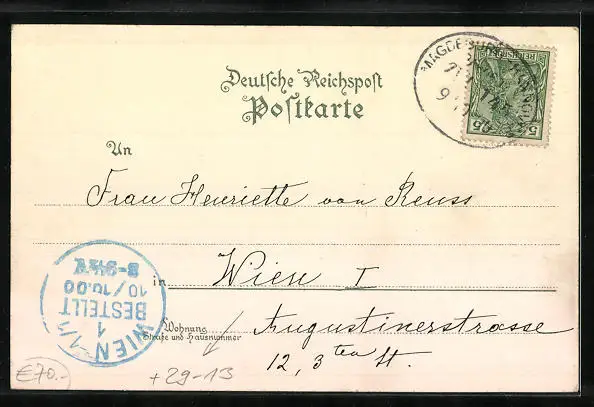 Deutsche Reichspost
Postkarte
MAGDEBURG
REICHSPOST
5 5
An
Frau Henriette von Reuss
in Wien I
Wohnung
Straße und Hausnummer
Augustinerstrasse
12, 3ten St.
WIEN 1/1
1
BESTELLT
10/10.00
€70.-
+29-13